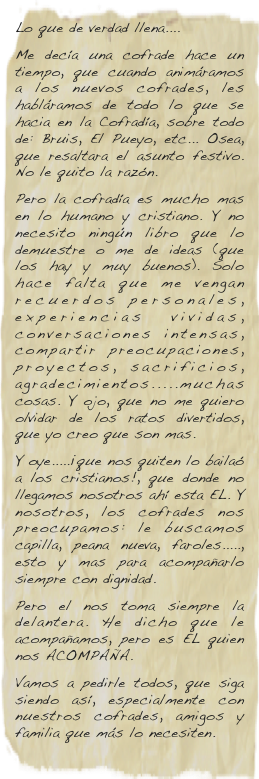 Lo que de verdad llena....
Me decía una cofrade hace un
tiempo, que cuando animáramos
a los nuevos cofrades, les
habláramos de todo lo que se
hacia en la Cofradía, sobre todo
de: Bruis, El Pueyo, etc... Osea,
que resaltara el asunto festivo.
No le quito la razón.
Pero la cofradía es mucho mas
en lo humano y cristiano. Y no
necesito ningún libro que lo
demuestre o me de ideas (que
los hay y muy buenos). Solo
hace falta que me vengan
recuerdos personales,
experiencias vividas,
conversaciones intensas,
compartir preocupaciones,
proyectos, sacrificios,
agradecimientos.....muchas
cosas. Y ojo, que no me quiero
olvidar de los ratos divertidos,
que yo creo que son mas.
Y oye.....¡que nos quiten lo bailaó
a los cristianos!, que donde no
llegamos nosotros ahí esta EL. Y
nosotros, los cofrades nos
preocupamos: le buscamos
capilla, peana nueva, faroles.....,
esto y mas para acompañarlo
siempre con dignidad.
Pero el nos toma siempre la
delantera. He dicho que le
acompañamos, pero es EL quien
nos ACOMPAÑA.
Vamos a pedirle todos, que siga
siendo así, especialmente con
nuestros cofrades, amigos y
familia que más lo necesiten.